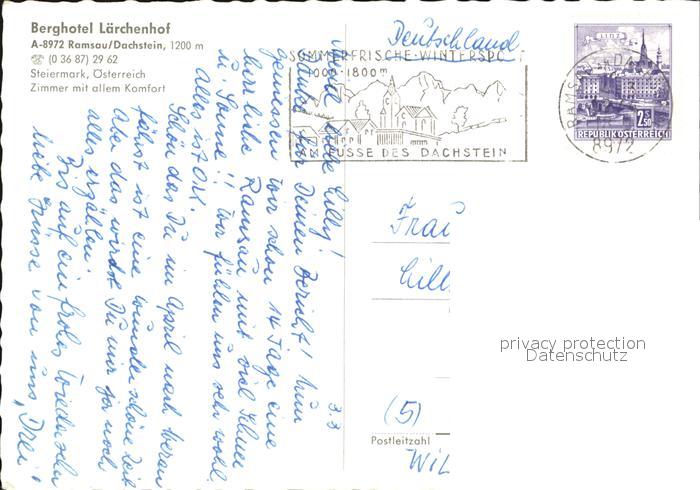 Berghotel Lärchenhof
A-8972 Ramsau/Dachstein, 1200 m
☎ (0 36 87) 29 62
Steiermark, Österreich
Zimmer mit allem Komfort
Deutschland
SOMMERFRISCHE-WINTERSPORT
1000-1800m
AM FUSSE DES DACHSTEIN
LINZ
2.50
REPUBLIK ÖSTERREICH
8972
3.3
liebe Lilly!
Danke für Deinen Bericht! Nun
geniessen wir schon 14 Tage eine
herrliche Ramsau mit viel Schnee
u. Sonne!! Wir fühlen uns sehr wohl.
Alles ist Ok!
Schön das Du im April nach Meran
fährst ist eine wunderschöne Zeit
Aber das wirst Du mir ja noch
alles erzählen.
Bis auf ein frohes Wiedersehn
liebe Grüsse von uns "Drei"
Frau
Lill
(5)
Postleitzahl
WiL
privacy protection
Datenschutz